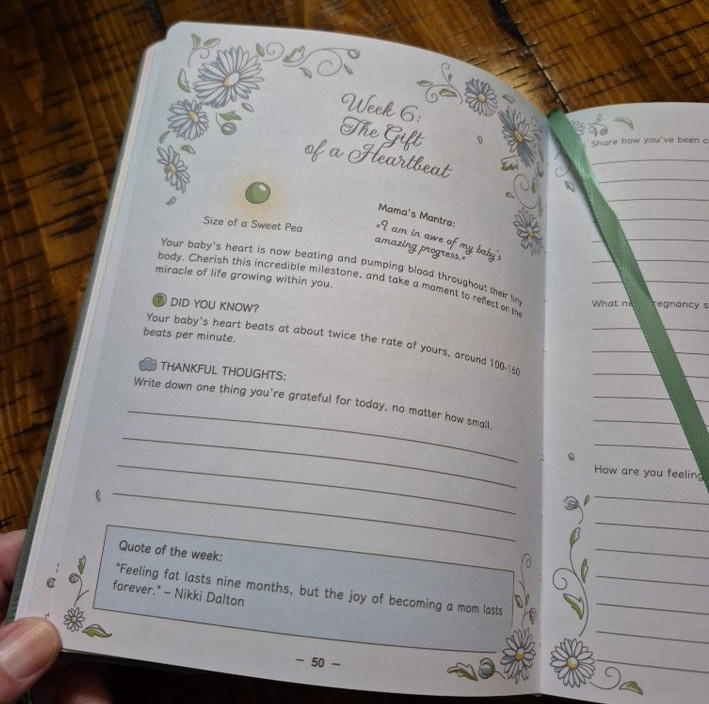 Week 6:
The Gift
of a Heartbeat
Size of a Sweet Pea
Mama's Mantra:
"I am in awe of my baby's
amazing progress."
Your baby's heart is now beating and pumping blood throughout their tiny
body. Cherish this incredible milestone, and take a moment to reflect on the
miracle of life growing within you.
? DID YOU KNOW?
Your baby's heart beats at about twice the rate of yours, around 100-160
beats per minute.
THANKFUL THOUGHTS:
Write down one thing you're grateful for today, no matter how small.
Quote of the week:
"Feeling fat lasts nine months, but the joy of becoming a mom lasts
forever." – Nikki Dalton
– 50 –
Share how you've been
What
How are you feeling